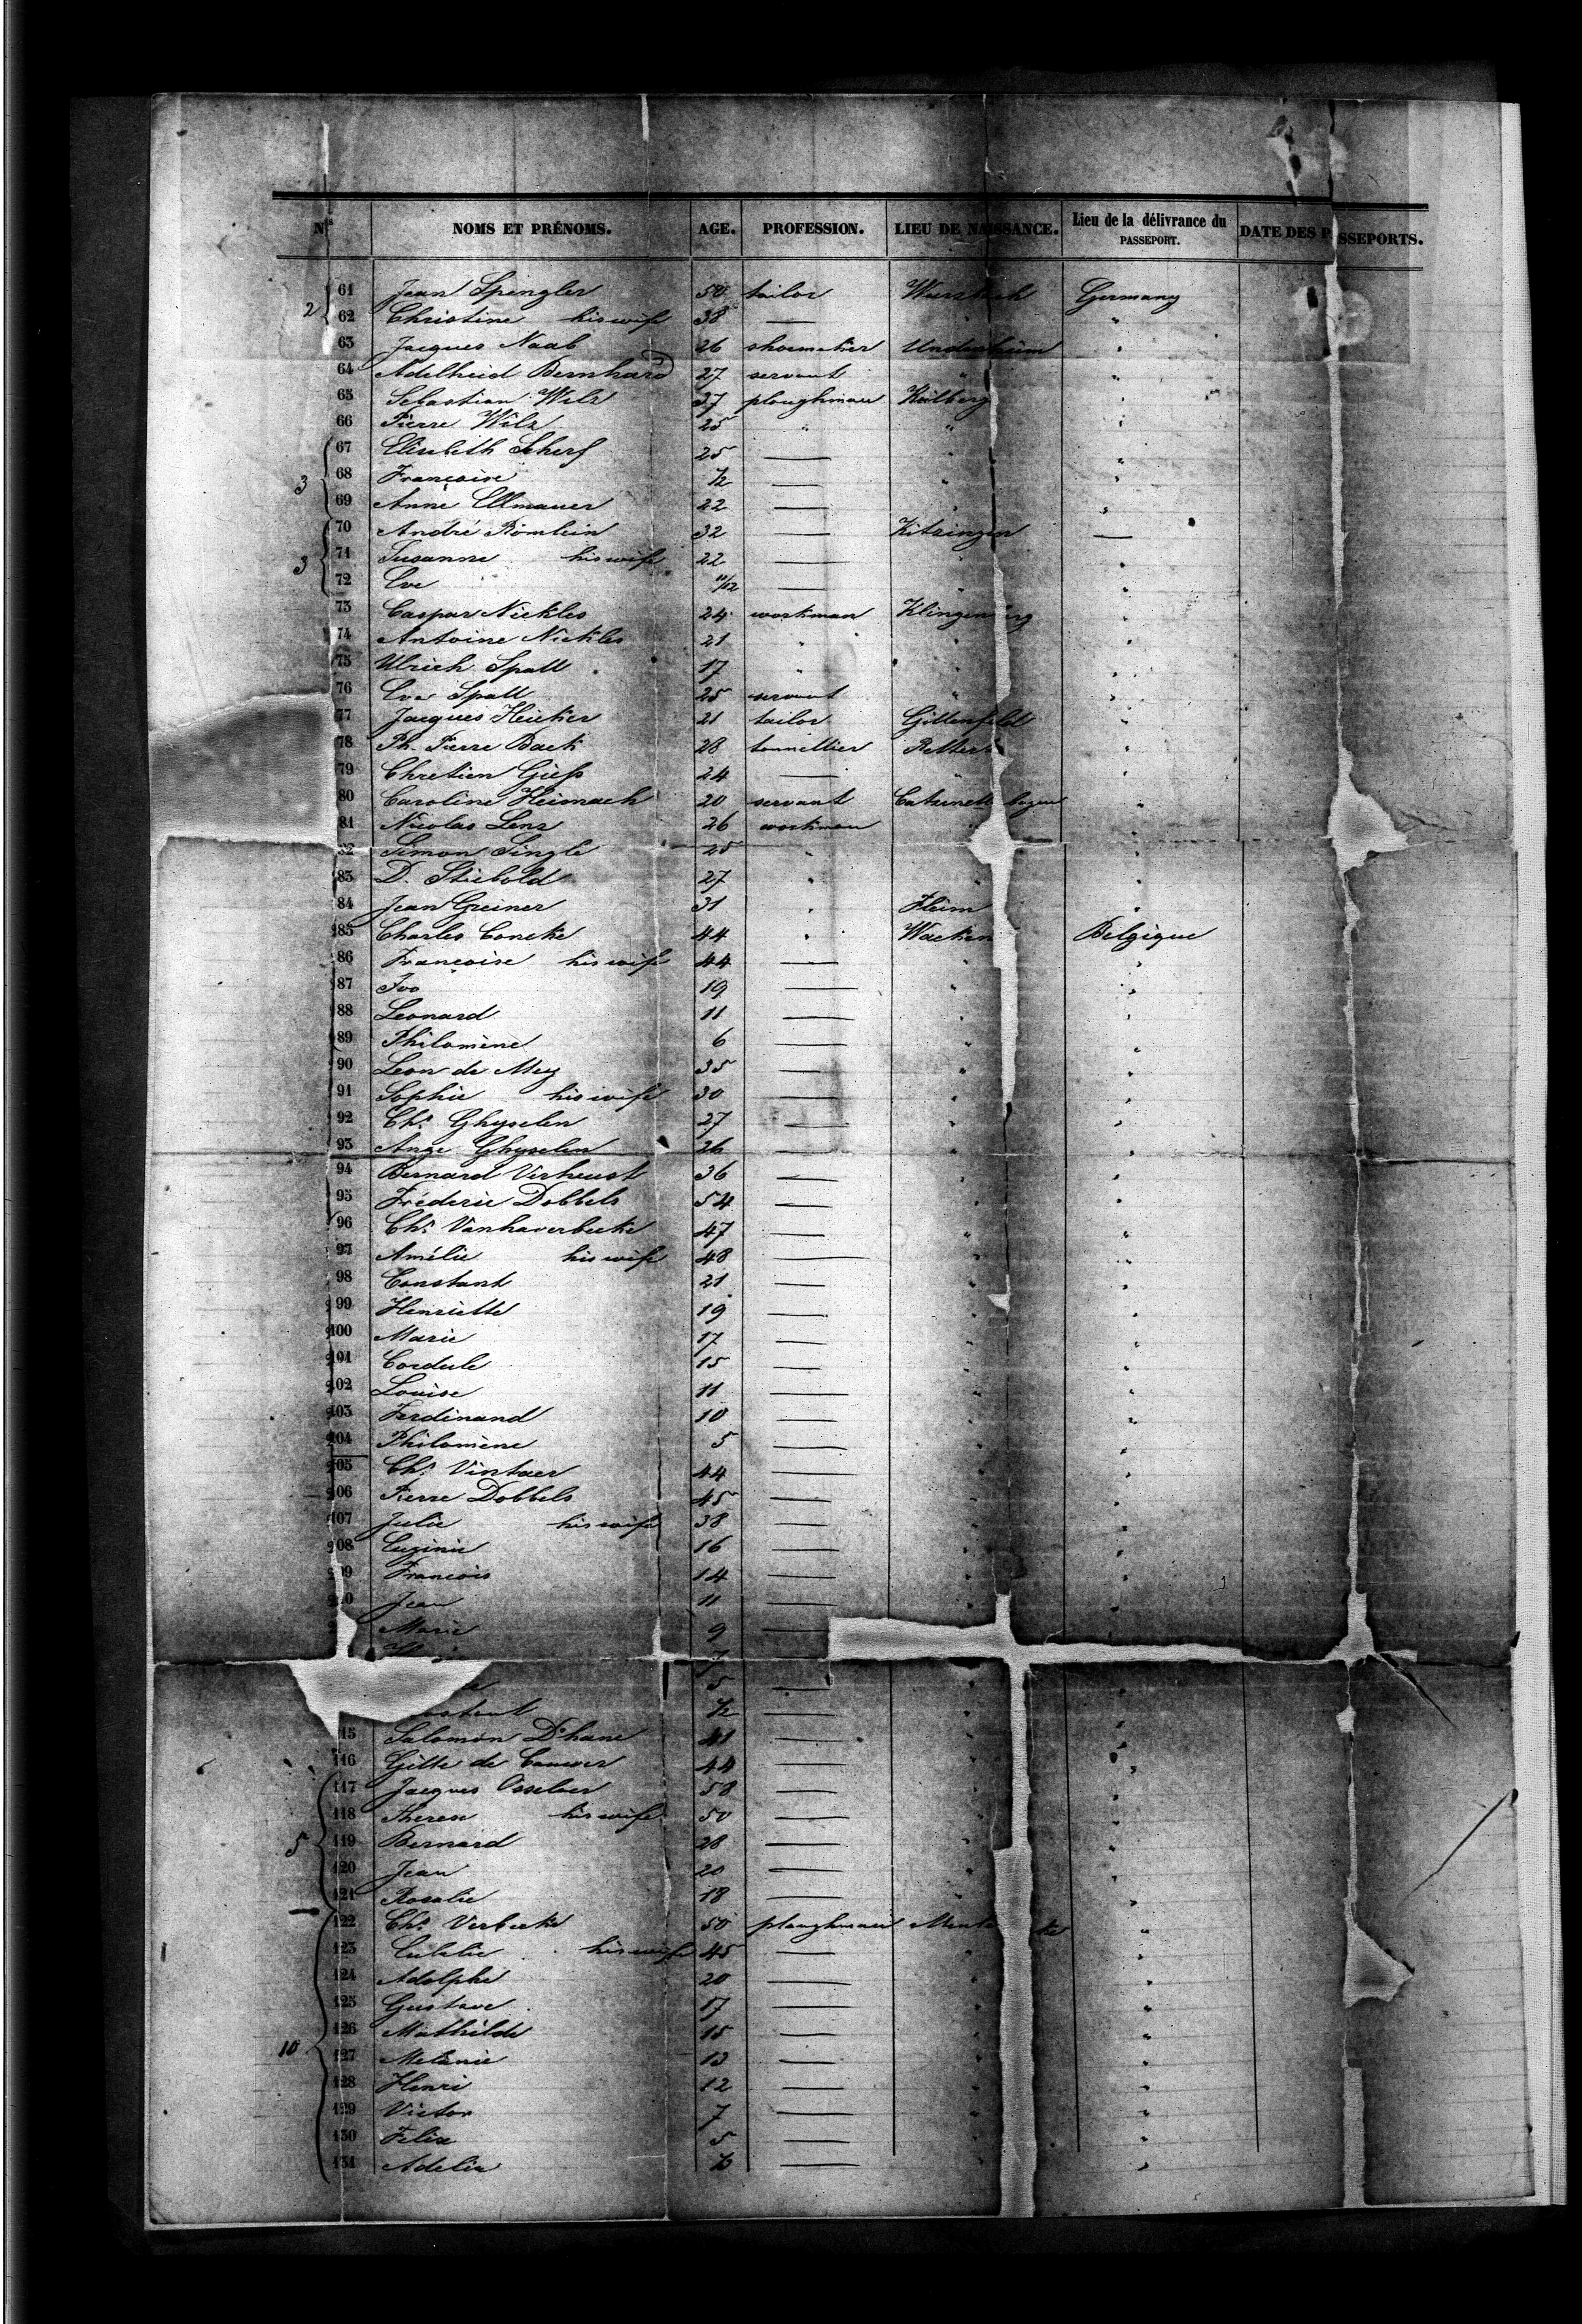 Nos NOMS ET PRÉNOMS. AGE. PROFESSION. LIEU DE NAISSANCE. Lieu de la délivrance du PASSEPORT. DATE DES PASSEPORTS.
2 61 Jean Spengler 50 tailor Germany
62 Christine his wife 38 — "
63 Jacques Naab 26 shoemaker "
64 Adelheid Bernhard 27 servant " "
65 Sebastian Wilz 37 ploughman Kelberg "
66 Pierre Wilz 25 " " "
67 Elisabeth Scherf 25 — " "
3 68 Françoise 1/2 — " "
69 Anne Ellmauer 22 — " "
70 André Römlein 32 — Kitzingen —
3 71 Susanne his wife 22 — " "
72 Eve 10/12 — " "
73 Caspar Nickles 24 workman Klingenberg "
74 Antoine Nickles 21 " " "
75 Ulrich Spall 17 " " "
76 Eva Spall 25 servant " "
77 Jacques Heicker 21 tailor Gillenfeld "
78 Ph. Pierre Back 28 tonnellier Rettert "
79 Chretien Giess 24 — " "
80 Caroline Heimach 20 servant "
81 Nicolas Lenz 26 workman " "
82 Simon Single 25 " "
83 D. Stiebold 27 " " "
84 Jean Greiner 31 " "
85 Charles Concke 44 " Wacken Belgique
86 Françoise his wife 44 — " "
87 Ivo 19 — " "
88 Leonard 11 — " "
89 Philomène 6 — " "
90 Leon de Mey 35 — " "
91 Sophie his wife 30 — " "
92 Chs Ghyselen 27 — " "
93 Ange Ghyselen 26 — " "
94 Bernard Verheust 36 — " "
95 Fréderic Dobbels 54 — " "
96 Chs Vanhaverbeeke 47 — " "
97 Amélie his wife 48 — " "
98 Constant 21 — " "
99 Henriette 19 — " "
100 Marie 17 — " "
101 Cordule 15 — " "
102 Louise 11 — " "
103 Ferdinand 10 — " "
104 Philomène 5 — " "
105 Chs Vintaer 44 — " "
106 Pierre Dobbels 45 — " "
107 Julie his wife 38 — " "
108 Euginie 16 — " "
109 François 14 — " "
110 Jean 11 — " "
Marie 9 —
7
5 — " "
1/2 — " "
115 Salomon D'hane 41 — " "
116 44 — " "
117 Jacques Osselaer 58 — " "
118 Therese his wife 50 — " "
5 119 Bernard 28 — " "
120 Jean 20 — " "
121 Rosalie 18 — " "
122 Chs Verbecke 50 ploughman "
123 his wife 45 — " "
124 Adolphe 20 — " "
125 Gustave 17 — " "
126 Mathilde 15 — " "
10 127 Melanie 13 — " "
128 Henri 12 — " "
129 Victor 7 — " "
130 Felix 5 — " "
131 Adelin — "